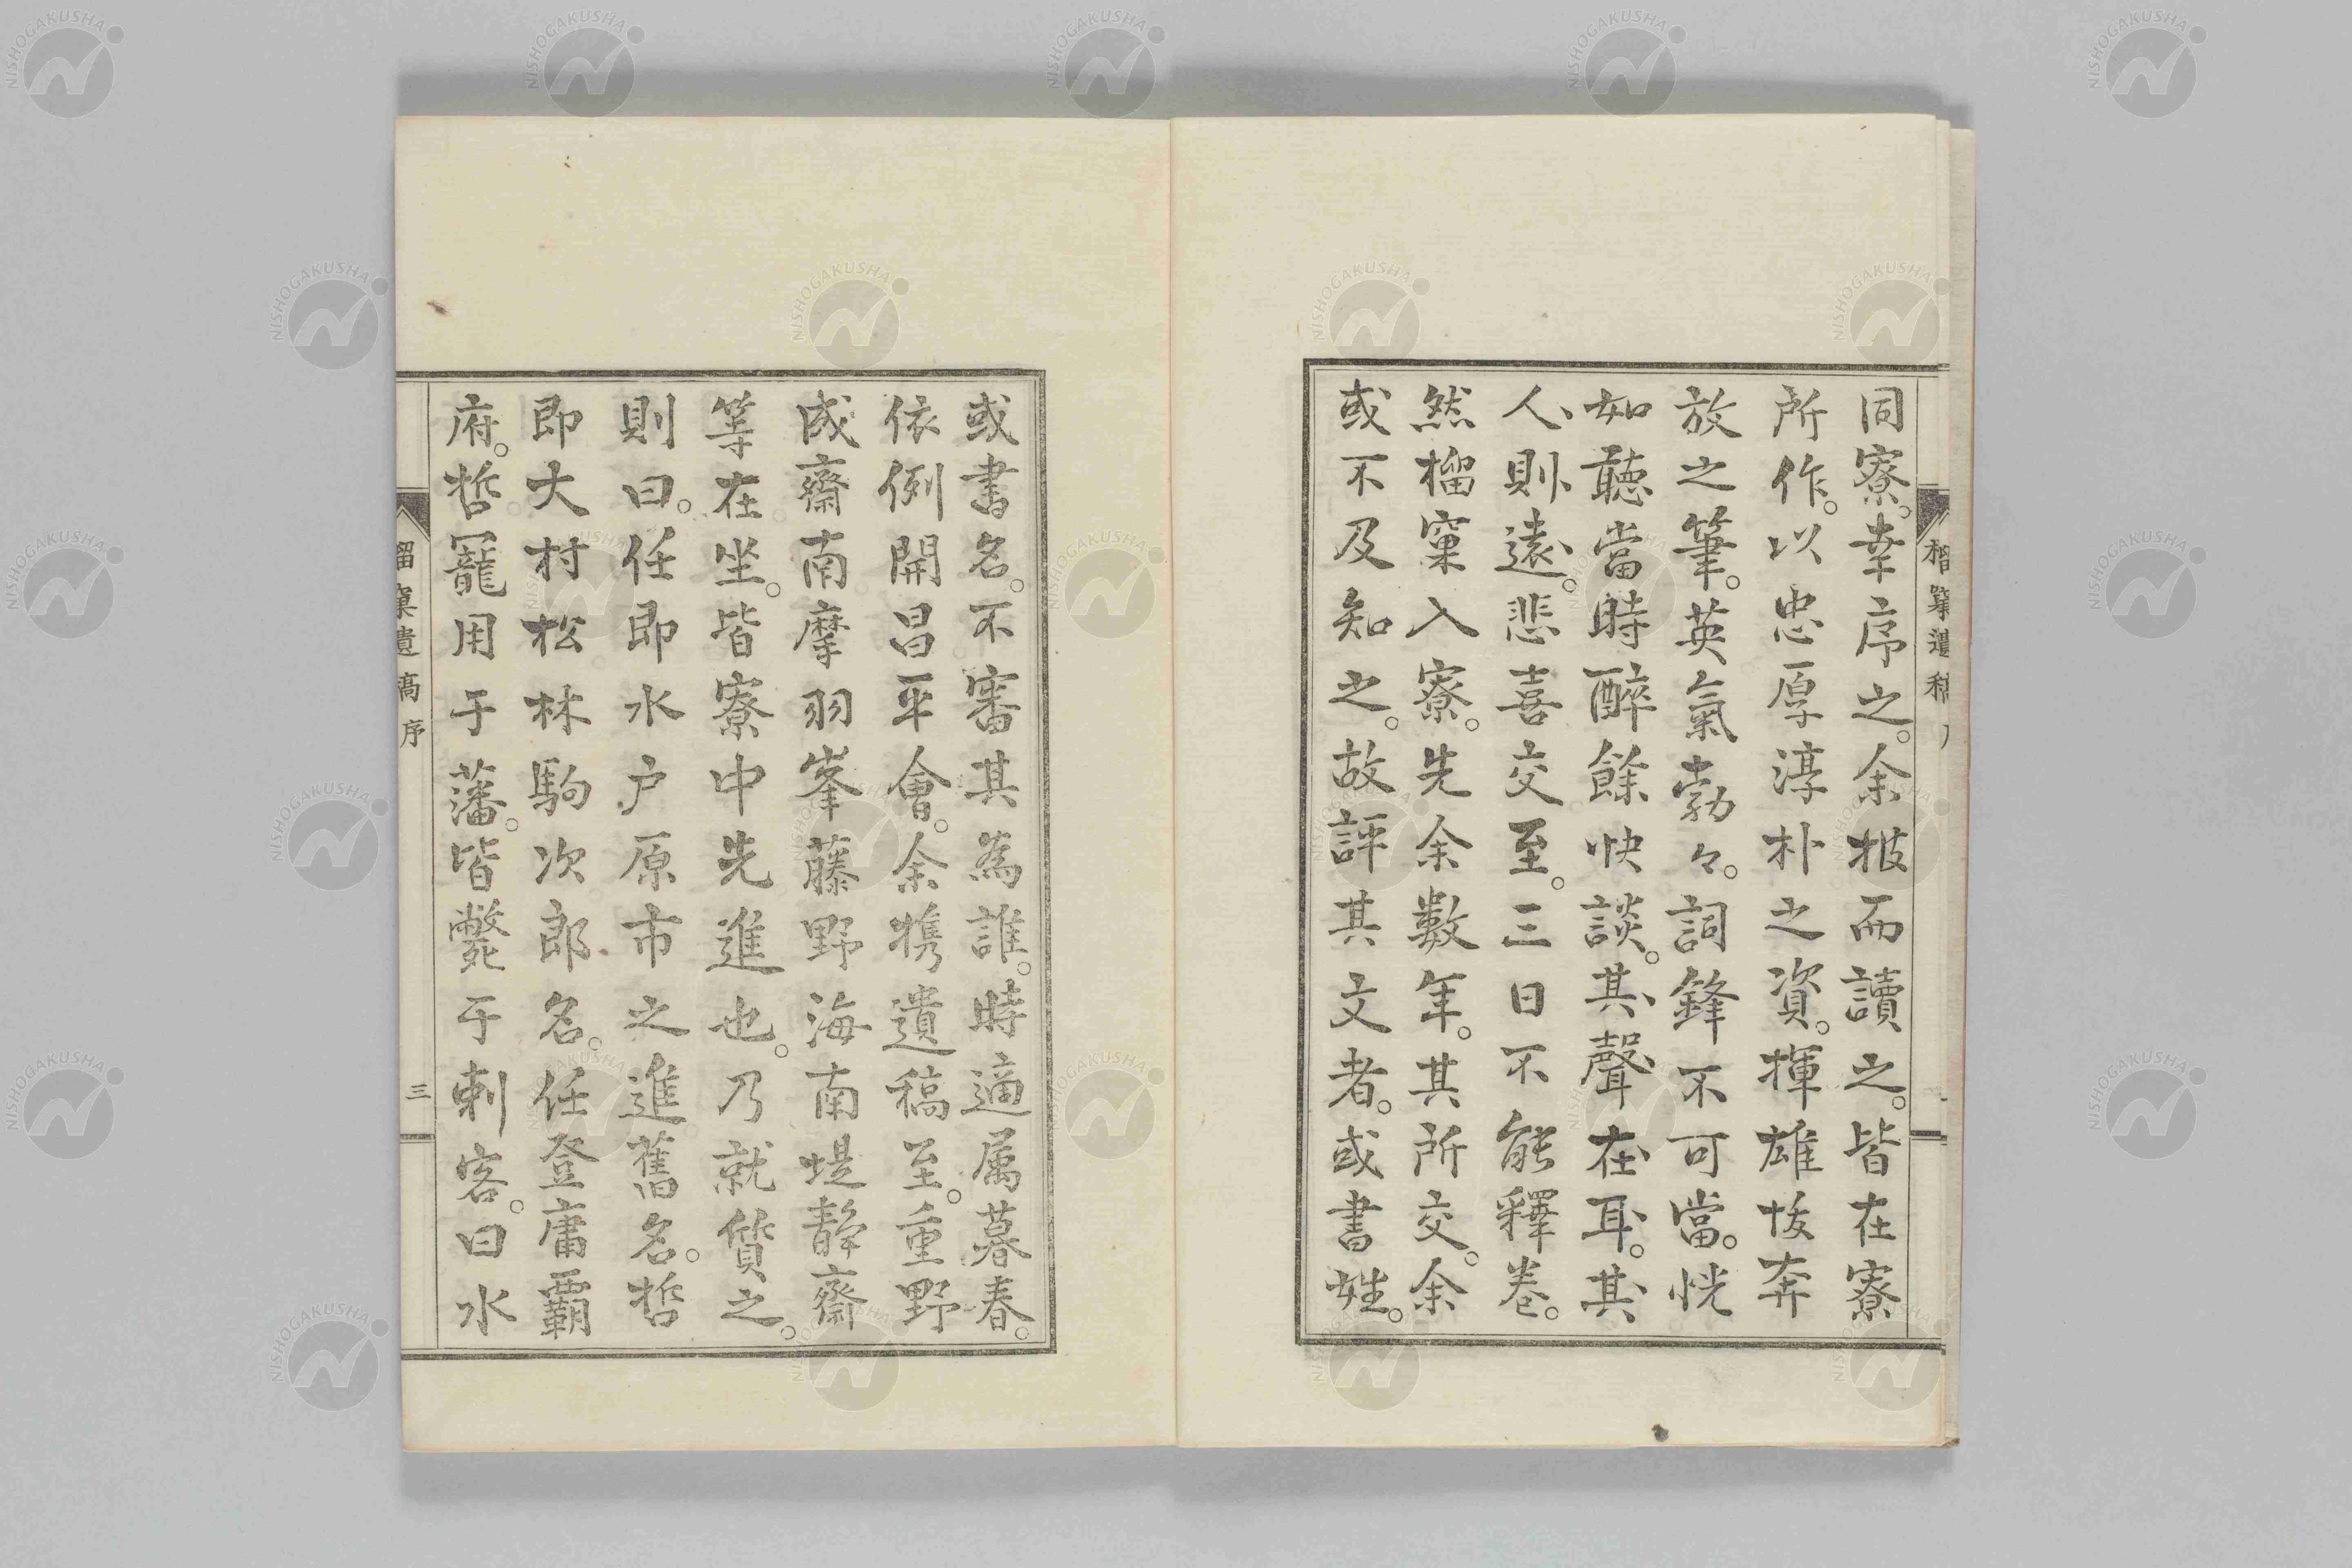 同寮。幸序之。余披而讀之。皆在寮
所作。以忠厚淳朴之資。揮雄俊奔
放之筆。英氣勃々。詞鋒不可當。恍
如聽當時醉餘快談。其聲在耳。其
人則遠。悲喜交至。三日不能釋卷。
然榴窠入寮。先余數年。其所交。余
或不及知之。故評其文者。或書姓。
或書名。不審其為誰。時適属暮春。
依例開昌平會。余携遺稿至。重野
成齋南摩羽峯藤野海南堤靜齋
等在坐。皆寮中先進也。乃就質之。
則曰。任即水戶原市之進舊名。哲
即大村松林駒次郎名。任登庸覇
府。哲寵用于藩。皆斃于刺客。曰水
榴窠遺稿序
三
NISHOGAKUSHA